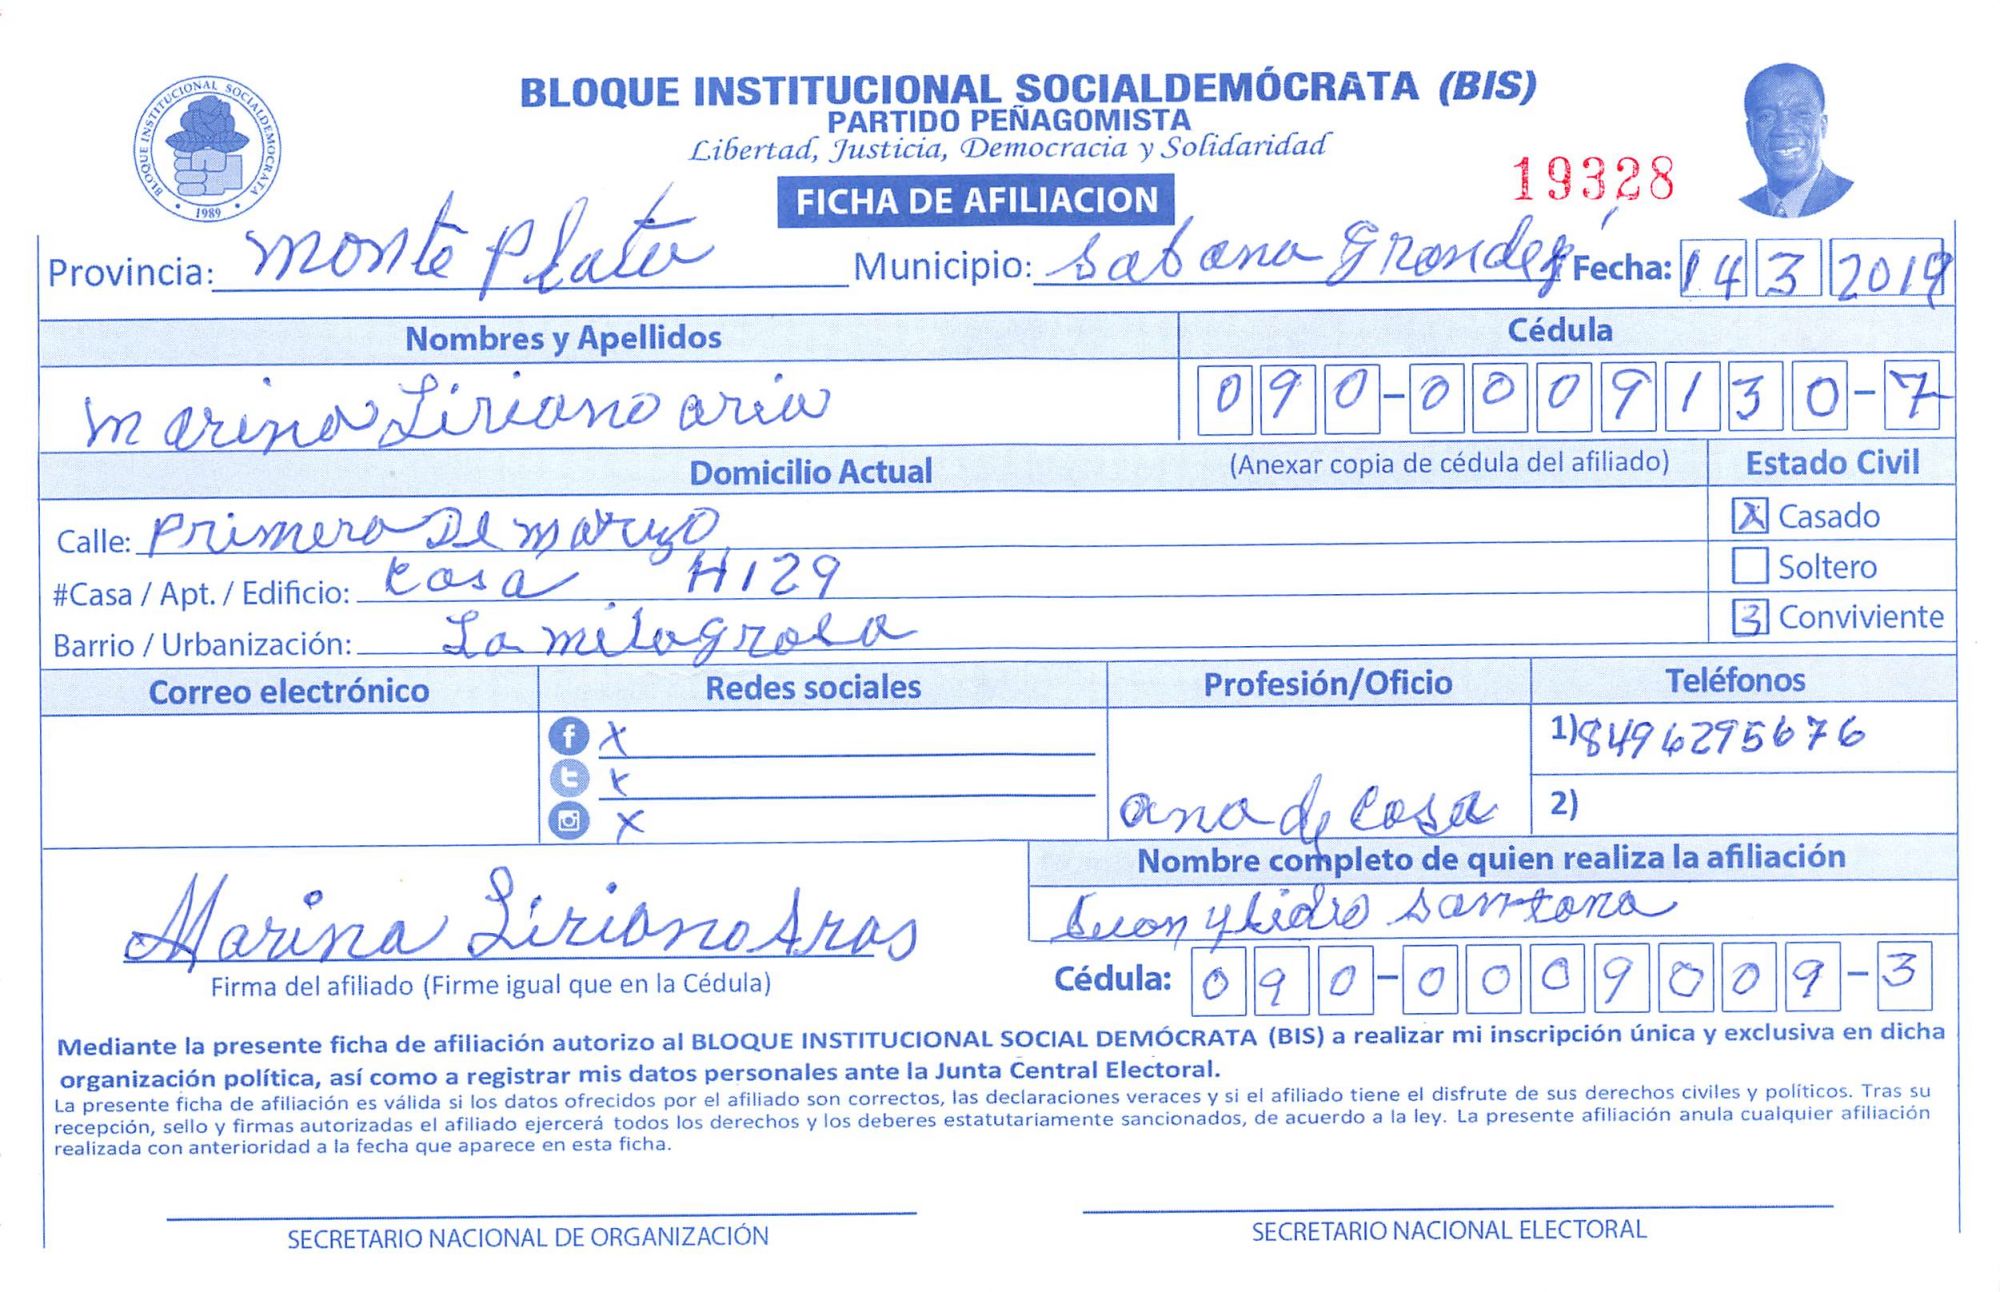 BLOQUE INSTITUCIONAL SOCIALDEMÓCRATA (BIS)
PARTIDO PEÑAGOMISTA
Libertad, Justicia, Democracia y Solidaridad
BLOQUE INSTITUCIONAL SOCIALDEMOCRATA
1989
19328
FICHA DE AFILIACION
Provincia: Monte Plata Municipio: Sabana Grande Fecha: 14 3 2019
Nombres y Apellidos Cédula
Marina Liriano aria 090-0009130-7
Domicilio Actual (Anexar copia de cédula del afiliado) Estado Civil
Calle: Primero De Marzo X Casado
#Casa / Apt. / Edificio: Casa H129 Soltero
Barrio / Urbanización: La milagrosa 3 Conviviente
Correo electrónico Redes sociales Profesión/Oficio Teléfonos
X 1) 8496295676
X
X ama de Casa 2)
Nombre completo de quien realiza la afiliación
Santana
Marina Liriano Arias
Firma del afiliado (Firme igual que en la Cédula) Cédula: 090-0009009-3
Mediante la presente ficha de afiliación autorizo al BLOQUE INSTITUCIONAL SOCIAL DEMÓCRATA (BIS) a realizar mi inscripción única y exclusiva en dicha
organización política, así como a registrar mis datos personales ante la Junta Central Electoral.
La presente ficha de afiliación es válida si los datos ofrecidos por el afiliado son correctos, las declaraciones veraces y si el afiliado tiene el disfrute de sus derechos civiles y políticos. Tras su
recepción, sello y firmas autorizadas el afiliado ejercerá todos los derechos y los deberes estatutariamente sancionados, de acuerdo a la ley. La presente afiliación anula cualquier afiliación
realizada con anterioridad a la fecha que aparece en esta ficha.
SECRETARIO NACIONAL DE ORGANIZACIÓN SECRETARIO NACIONAL ELECTORAL